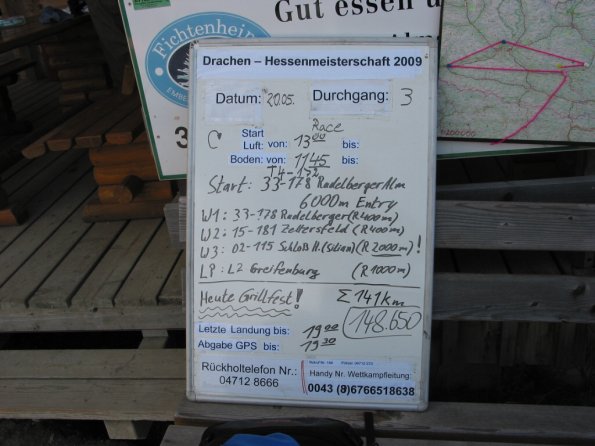 Gut essen u
Fichtenhein
Drachen – Hessenmeisterschaft 2009
Datum: 20.05. Durchgang: 3
Start Race
C Luft: von: 13⁰⁰ bis:
Boden: von: 11⁴⁵ bis:
T4-132
Start: 33-178 Radelberger Alm
6000m Entry
W1: 33-178 Radelberger (R 400m)
W2: 15-181 Zettersfeld (R 400m)
W3: 02-115 Schloß H. (Silian) (R 2000m)!
LP: L2 Greifenburg (R 1000m)
Heute Grillfest! Σ 141 km
148.650
Letzte Landung bis: 19⁰⁰
Abgabe GPS bis: 19³⁰
Rückholtelefon Nr.:
04712 8666
Handy Nr. Wettkampfleitung:
0043 (0)6766518638